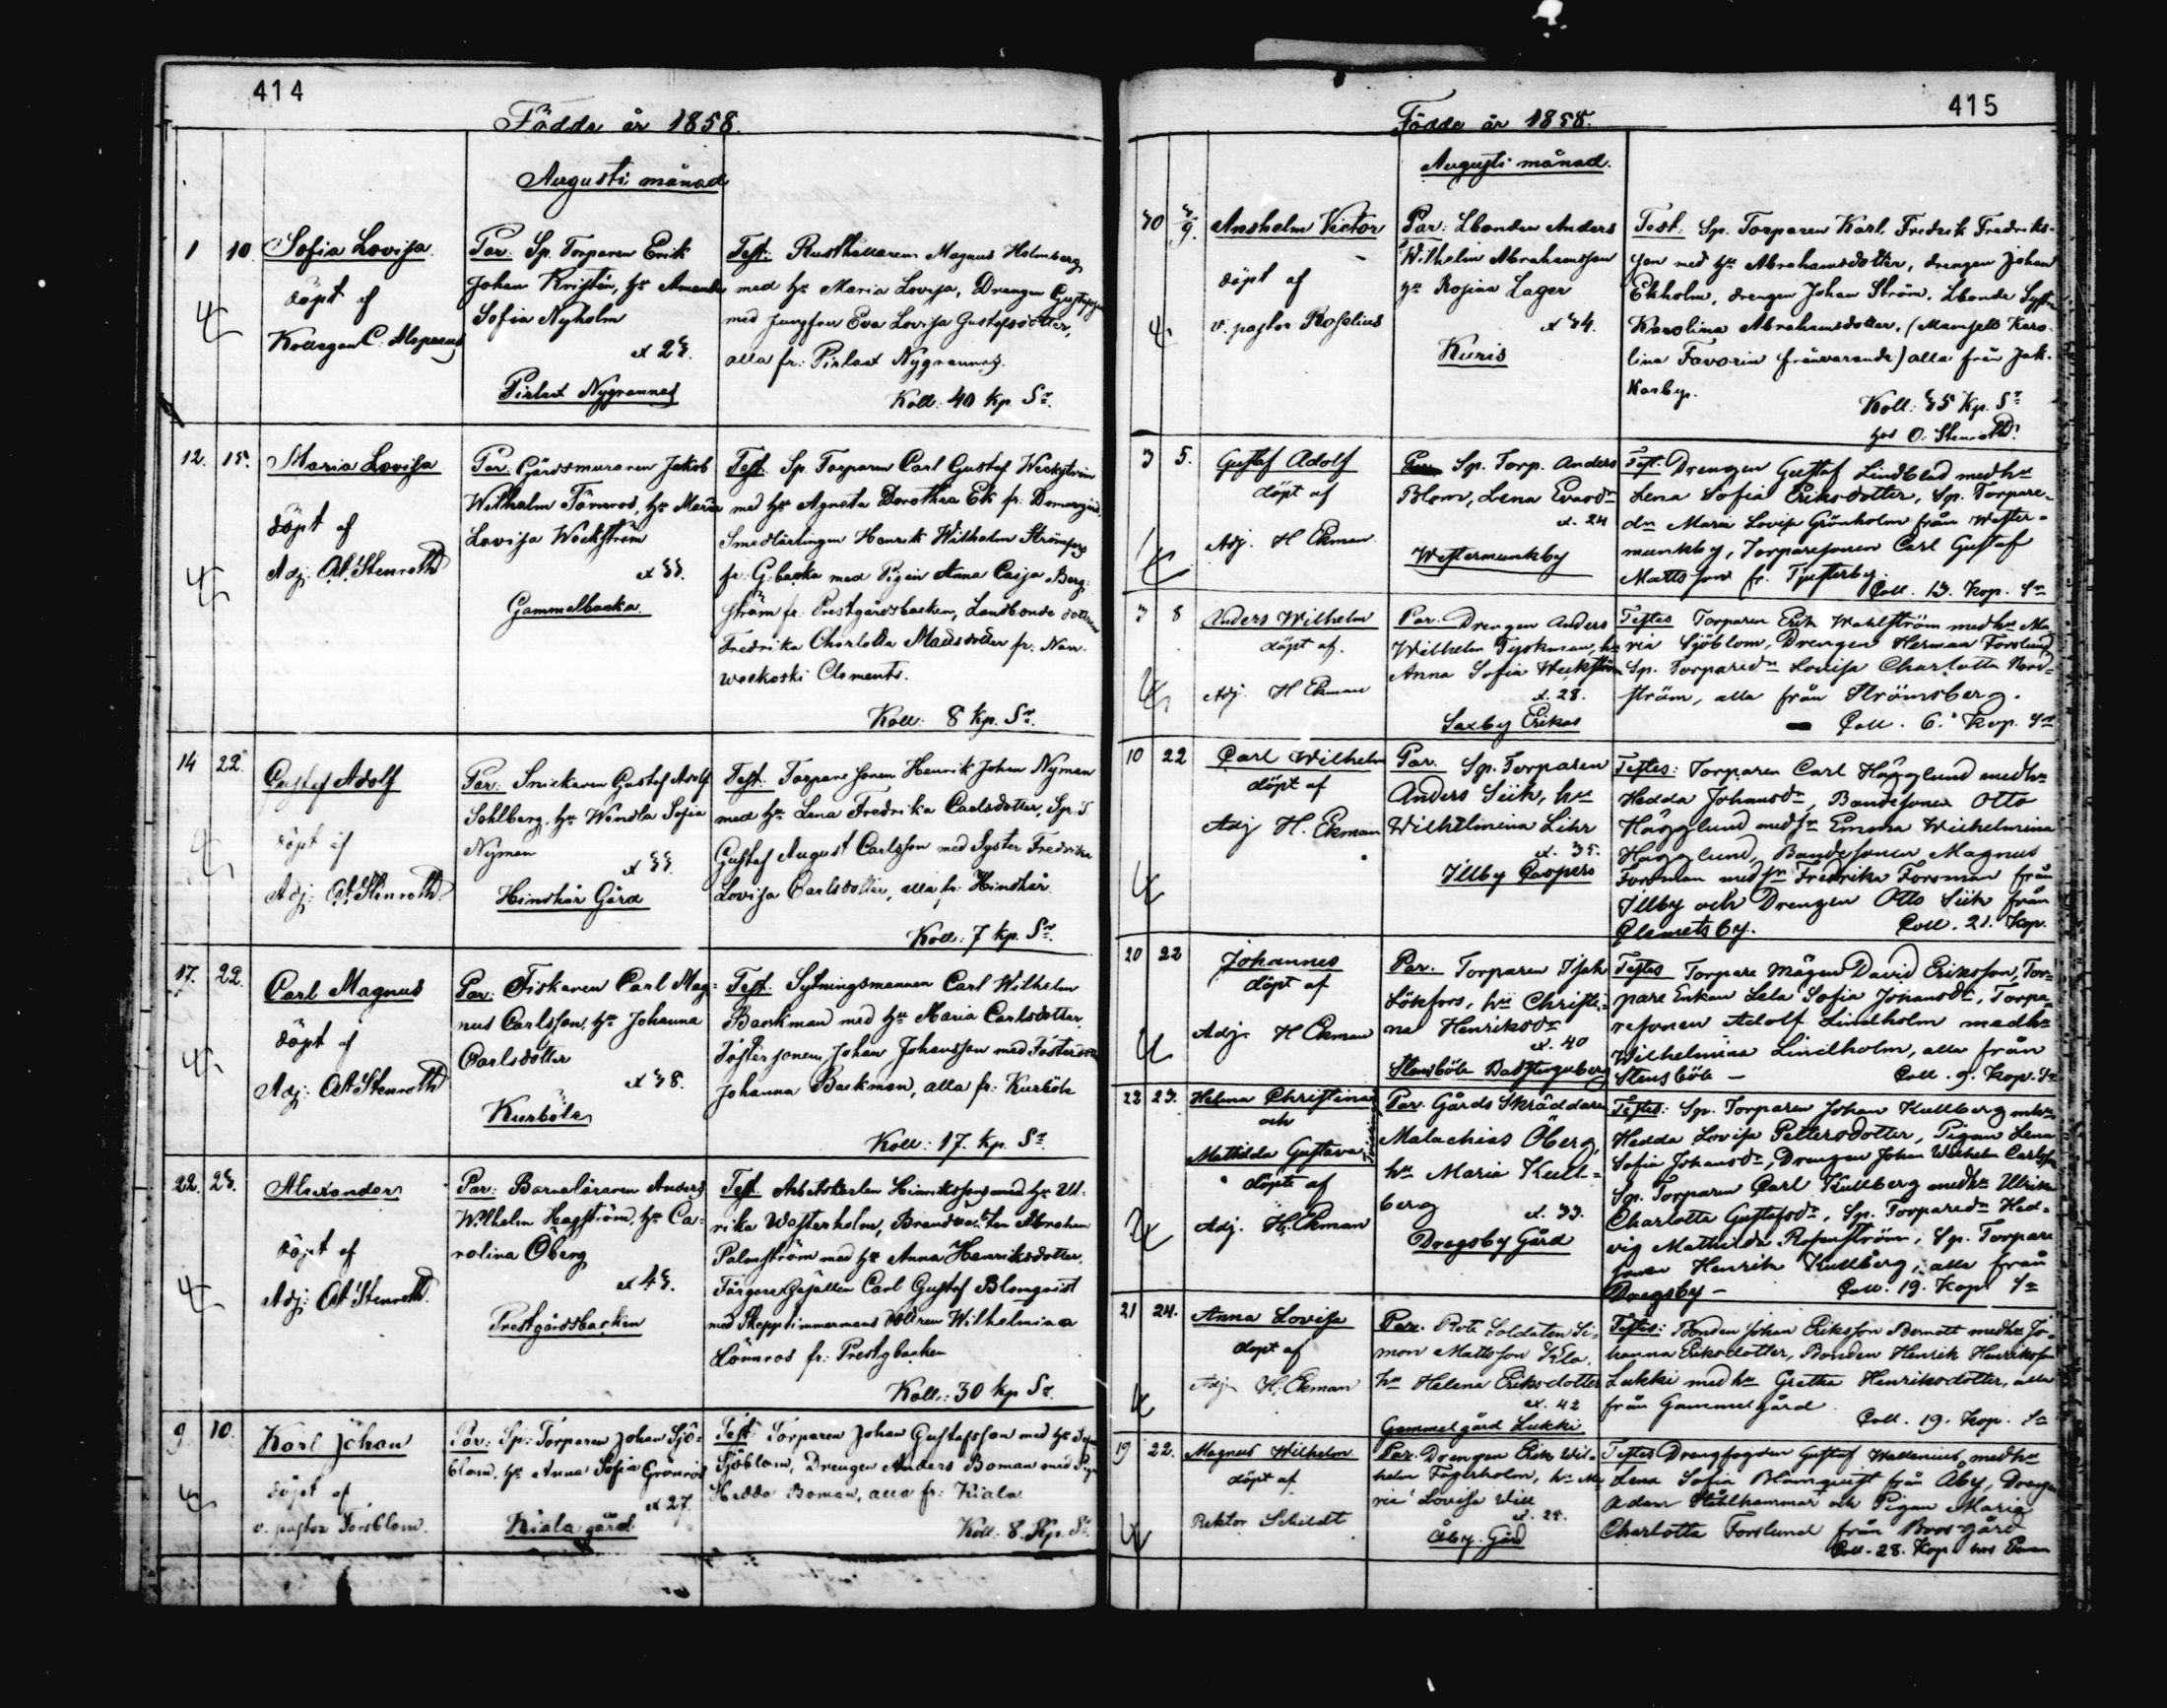 414
Födde år 1858.
Augusti månad
1 10 Sofia Lovisa
döpt af
Kollegan C. Alopaeus
Par: Sp. Torparen Erik
Johan Kristin, hu Amanda
Sofia Nyholm
æt 23.
Pirlax Nygrannas
Test: Rusthållaren Magnus Holmberg
med hu Maria Lovisa, Drengen
med Jungfru Eva Lovisa Gustafsdotter,
alla fr: Pirlax Nygrannas.
Koll: 40 Kp. Sr.
12. 15. Maria Lovisa
döpt af
Adj: At. Stenroth
Par. Gårdsmuraren Jakob
Wilhelm Törnros, hu Maria
Lovisa Weckström
æt 33.
Gammelbacka
Test. Sp. Torparen Carl Gustaf Weckström
med hu Agneta Dorothea Ek fr.
Smedlärlingen Henrik Wilhelm
fr: G:backa med Pigan Anna Caisa Berg-
ström fr. Prestgårdsbacken, Landbonde dottren
Fredrika Charlotta Madsdotter fr. Narr-
wekoski Clements.
Koll: 8 Kp. Sr.
14 22. Gustaf Adolf
döpt af
Adj: At. Stenroth
Par: Snickaren Gustaf Adolf
Sohlberg, hu Wendla Sofia
Nyman
æt 33.
Hindhår Gård
Test. Torpare sonen Henrik Johan Nyman
med hu Lena Fredrika Carlsdotter, Sp. S.
Gustaf August Carlsson med Syster Fredrika
Lovisa Carlsdotter, alla fr. Hindhår
Koll: 7 Kp. Sr.
17. 22. Carl Magnus
döpt af
Adj: At Stenroth
Par: Fiskaren Carl Mag-
nus Carlsson, hu Johanna
Carlsdotter
æt 38.
Kurböle
Test. Sytningsmannen Carl Wilhelm
Backman med hu Maria Carlsdotter,
Fostersonen Johan Johansson med
Johanna Backman, alla fr: Kurböle
Koll: 17. Kp. Sr.
22. 23. Alexander
döpt af
Adj: At Stenroth.
Par: Barnaläraren Anders
Wilhelm Hagström, hu Ca-
rolina Öberg
æt 43.
Prestgårdsbacken
Test. Arbetskarlen Hinriksson med hu Ul-
rika Westerholm, Brandvakten Abraham
Palmström med hu Anna Henriksdotter,
Färgare Gesällen Carl Gustaf Blomqvist
med Skeppstimmermans dottren Wilhelmina
Lönnros fr: Prestgbacken
Koll: 30 Kp Sr.
9 10. Karl Johan
döpt af
v. pastor Forsblom.
Par: Sp: Torparen Johan Sjö-
blom, hu Anna Sofia Grönros
æt 27.
Kiala gård
Test: Torparen Johan Gustafsson med hu
Sjöblom, Drengen Anders Boman med
Hedda Boman, alla fr: Kiala
Koll: 8. Kp. Sr.
415
Födde år 1858.
Augusti månad.
30 3/9. Anshelm Victor
döpt af
v. pastor Roselius
Par: Lbonden Anders
Wilhelm Abrahamsson
hu Rosina Lager
æt 34.
Kuris
Test: Sp. Torparen Karl Fredrik Fredriks-
son med hu Abrahamsdotter, drengen Johan
Ekholm, drengen Johan Ström, Lbonde
Karolina Abrahamsdotter, (Mamsell Karo-
lina Favorin frånvarande) alla från Jak-
karby.
Koll: 35 Kp. Sr
hos O. Stenroth.
3 5. Gustaf Adolf
döpt af
Adj. H Ekman.
Sp. Torp. Anders
Blom, Lena Evasdr
æt. 24
Westermunkby
Test. Drengen Gustaf Lindblad med hu
Lena Sofia Eriksdotter, Sp. Torpare-
dn Maria Lovisa Grönholm från Wester-
munkby, Torparesonen Carl Gustaf
Mattsson fr. Tjusterby.
Coll. 13. Kop. Sr
3 8 Anders Wilhelm
döpt af.
Adj. H Ekman
Par. Drengen Anders
Wilhelm Tyskman, hu
Anna Sofia Weckström
æt. 28.
Saxby Erikas
Testes Torparen Erik Wahlström med hu Ma-
ria Sjöblom, Drengen Herman Forslund
Sp. Torparedn Lovisa Charlotta Nord-
ström, alla från Strömsberg.
Coll. 6. Kop. Sr
10 22 Carl Wilhelm
döpt af
Adj H. Ekman
Par. Sp. Torparen
Anders Siik, hu
Wilhelmina Lihr
æt. 35.
Illby Caspers
Testes: Torparen Carl Hägglund med hu
Hedda Johansdr, Bondesonen Otto
Hägglund med sr Emma Wilhelmina
Hägglund, Bondesonen Magnus
Forsman med sr Fredrika Forsman från
Illby och Drengen Otto Siik från
Clemetsby.
Coll. 21. Kop.
20 22 Johannes
döpt af
Adj. H Ekman
Par. Torparen Isak
Lökfors, hu Christi-
na Henriksdr
æt. 40
Stensböle
Testes Torpare mågen David Eriksson, Tor-
pare Enkan Lela Sofia Johansdr, Torpa-
resonen Adolf Lindholm med hu
Wilhelmina Lindholm, alla från
Stensböle -
Coll. 9. Kop. Sr
22 23. Helena Christina
och
Mathilda Gustava
döpta af
Adj. H. Ekman
Par. Gårds Skräddaren
Malachias Öberg,
hu Maria Kull-
berg
æt. 33.
Drägsby Gård
Testes: Sp. Torparen Johan Kullberg m hu
Hedda Lovisa Pettersdotter, Pigan Lena
Sofia Johansdr, Drengen Johan Wilhelm Carlsson
Sp. Torparen Carl Kullberg med hu Ulrika
Charlotta Gustafsdr, Sp. Torparedn Hed-
vig Mathilda Rosenström, Sp. Torpare
sonen Henrik Kullberg, alla från
Drägsby -
Coll. 19. Kop Sr
21 24. Anna Lovisa
döpt af
Adj. H. Ekman
Par. Rote Soldaten Si-
mon Mattsson Kila,
hu Helena Eriksdotter
æt. 42
Gammelgård Lukki
Testes: Bonden Johan Eriksson Bernott med hu Jo-
hanna Eriksdotter, Bonden Henrik Henriksson
Lukki med hu Gretha Henriksdotter, alla
från Gammelgård
Coll. 19. Kop. Sr
19 22. Magnus Wilhelm
döpt af
Rektor Schildt
Par. Drengen Erik Wil-
helm Fagerholm, hu Ma-
ria Lovisa Will
æt.
Åby Gård
Testes Drengfogden Gustaf Wallenius med hu
Lena Sofia Blomquist från Åby, Drengen
Adam Stålhammar och Pigan Maria
Charlotta Forslund från Boosgård
Coll. 28. Kop. hos